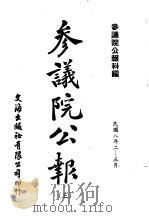 參議院公報科編
參議院公報
民國八年二—三月
文海出版社有限公司印行